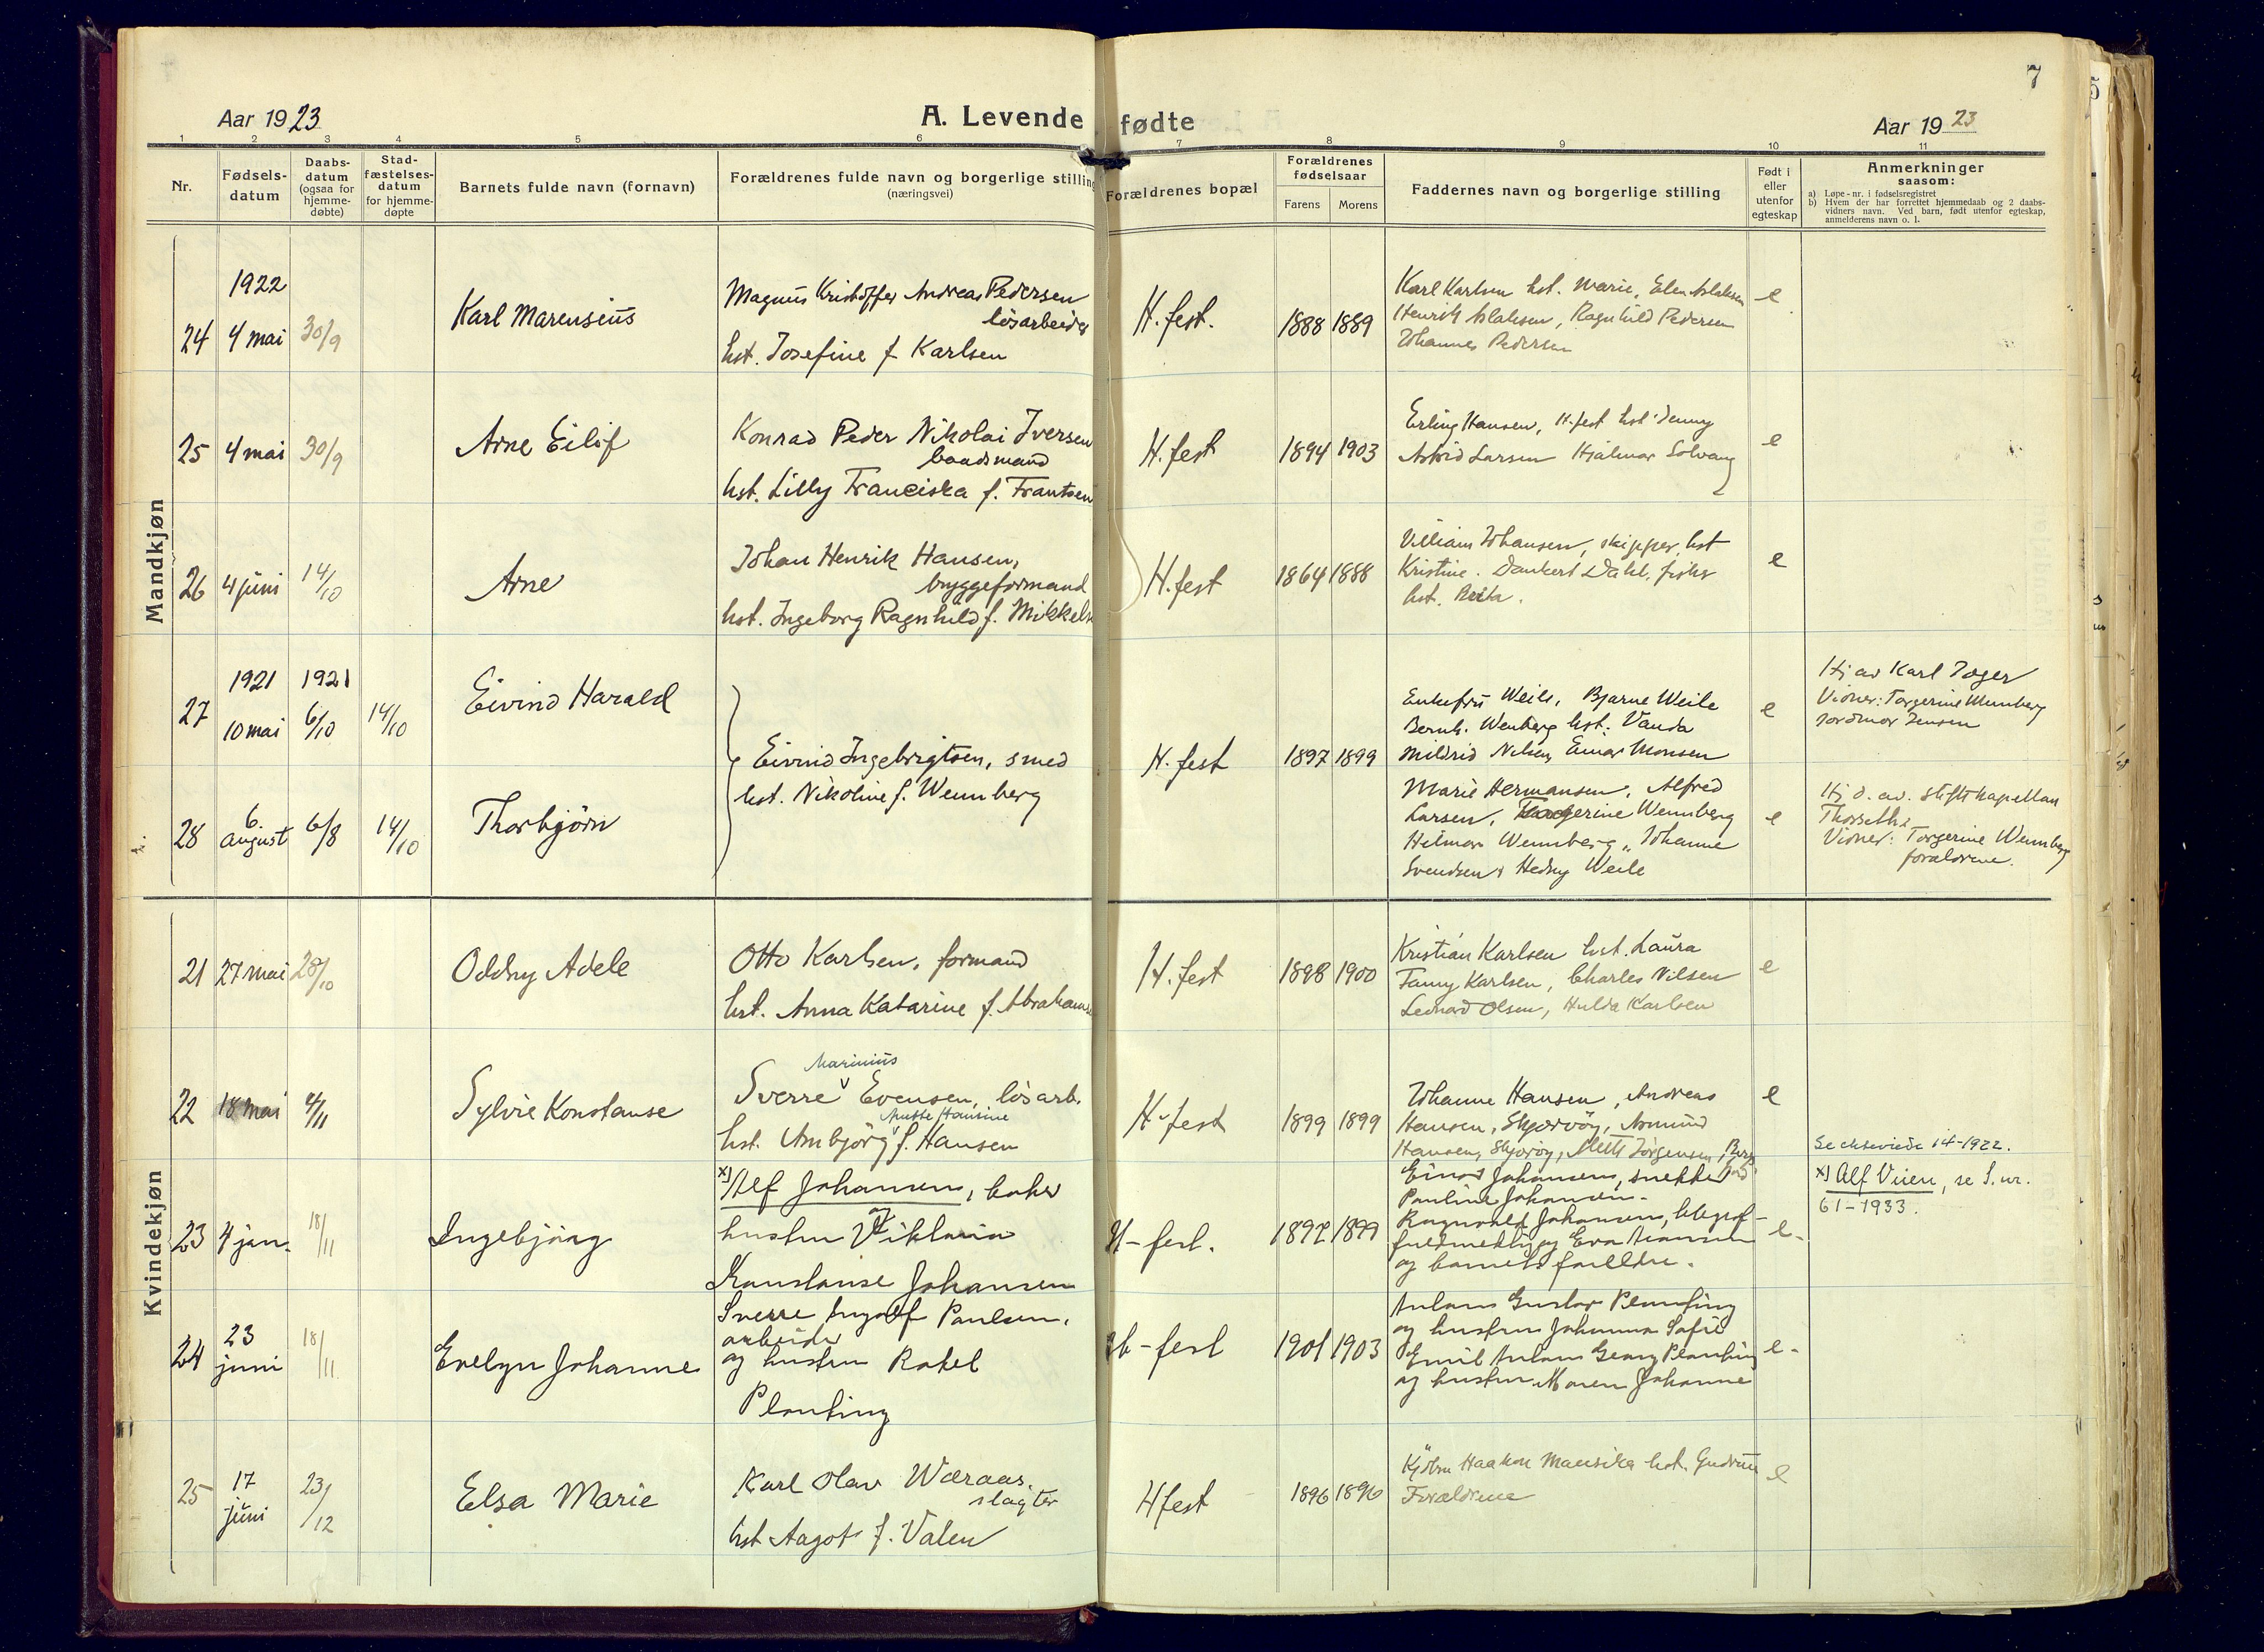 7
Aar 1923
A. Levende fødte
Aar 1923
1 2 3 4 5 6 7 8 9 10 11
Nr.
Fødsels-
datum
Daabs-
datum
(ogsaa for
hjemme-
døbte)
Stad-
fæstelses-
datum
for hjemme-
døpte
Barnets fulde navn (fornavn)
Forældrenes fulde navn og borgerlige stilling
(næringsvei)
Forældrenes bopæl
Forældrenes
fødselsaar
Farens Morens
Faddernes navn og borgerlige stilling
Født i
eller
utenfor
egteskap
Anmerkninger
saasom:
a) Løpe-nr. i fødselsregistret
b) Hvem der har forrettet hjemmedaab og 2 daabs-
vidners navn. Ved barn, født utenfor egteskap,
anmelderens navn o. l.
Mandkjøn
24
1922
4 mai
30/9
Karl Marensius
Magnus Kristoffer Andreas Pedersen
løsarbeider
hst. Josefine f. Karlsen
H.fest.
1888 1889
Karl Karlsen hst. Marie, Elen Aslaksen
Henrik Aslaksen, Ragnhild Pedersen
Johannes Pedersen
e
25
4 mai
30/9
Arne Eilif
Konrad Peder Nikolai Iversen
baadsmand
hst. Lilly Franciska f. Frantsen
H.fest
1894 1903
Erling Hansen, H.fest hst. Jenny
Astrid Larsen Hjalmar Solvang
e
26
4 juni
14/10
Arne
Johan Henrik Hansen,
bryggeformand
hst. Ingeborg Ragnhild f. Mikkels
H.fest
1864 1888
Villiam Johansen, skipper, hst
Kristine. Dankert Dahl, fisker
hst. Berta.
e
27
1921
10 mai
1921
6/10
14/10
Eivind Harald
Eivind Ingebrigtsen, smed
hst. Nikoline f. Wennberg
H.fest
1897 1899
Enkefru Weile, Bjarne Weile
Bernh. Wenberg hst. Vanda
Mildrid Nilsen, Einar Monsen
e
Hj av Karl Jæger
Vidner: Torgerine Wennberg
jordmor Jensen
28
6. august
6/8
14/10
Thorbjørn
Marie Hermansen, Alfred
Larsen, Torgerine Wennberg
Hilmar Wennberg, Johanne
Svendsen, Hedvig Weile
e
Hj d. av. stiftskapellan
Thorseth.
Vidner: Torgerine Wennberg
forældrene.
Kvindekjøn
21
27 mai
28/10
Oddny Adele
Otto Karlsen, formand
hst. Anna Katarine f. Abrahams
H.fest
1898 1900
Kristian Karlsen hst. Laura
Fanny Karlsen, Charles Nilsen
Leonard Olsen, Hulda Karlsen
e
22
18 mai
4/11
Sylvie Konstanse
Marinius
Sverre Evensen, løsarb.
Anette Hansine
hst. Arnbjørg f. Hansen
H.fest
1899 1899
Johanne Hansen, Andreas
Hansen, Skjervøy, Armund
Hansen, Skjervøy, Meth Jørgensen,
e
23
4 jan.
18/11
Ingebjørg
x) Alf Johansen, baker
og
hustru Viktoria
Konstanse Johansen
H-fest.
1897 1899
Einar Johansen, snekker
Pauline Johansen.
Ragnvald Johansen, telegraf-
fuldmektig og Eva Hansen
og barnets foreldre.
e-
Se ekteviede 14-1922.
x) Alf Viien, se S. nr.
61-1933.
24
23 juni
18/11
Evelyn Johanne
Sverre Ingolf Paulsen,
arbeider
og hustru Rakel
Planting
H-fest
1901 1903
Antons Gustav Planting
og hustru Johanna Sofie
Emil Antons Georg Planting
og hustru Maren Johanne
e-
25
17 juni
23/12
Elsa Marie
Karl Olav Wæraas,
slagter
hst Aagot f. Valen
H.fest
1896 1896
Kjøbm Haakon Mausika hst. Gudrun
Forældrene
e